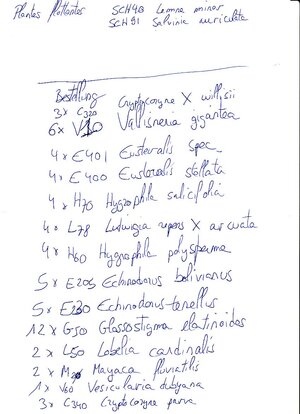 Plantes flottantes SCH40 Lemna minor
SCH91 Salvinia auriculata
Bestellung
3x C320 Cryptocoryne X willisii
6x V10 Vallisneria gigantea
4x E401 Eusteralis spec
4x E400 Eusteralis stellata
4x H70 Hygrophila salicifolia
4x L78 Ludwigia repens X arcuata
4x H60 Hygrophila polysperma
5x E205 Echinodorus bolivianus
5x E230 Echinodorus tenellus
12x G50 Glossostigma elatinoides
2x L50 Lobelia cardinalis
2x M20 Mayaca fluviatilis
1x V60 Vesicularia dubyana
3x C340 Cryptocoryne parva